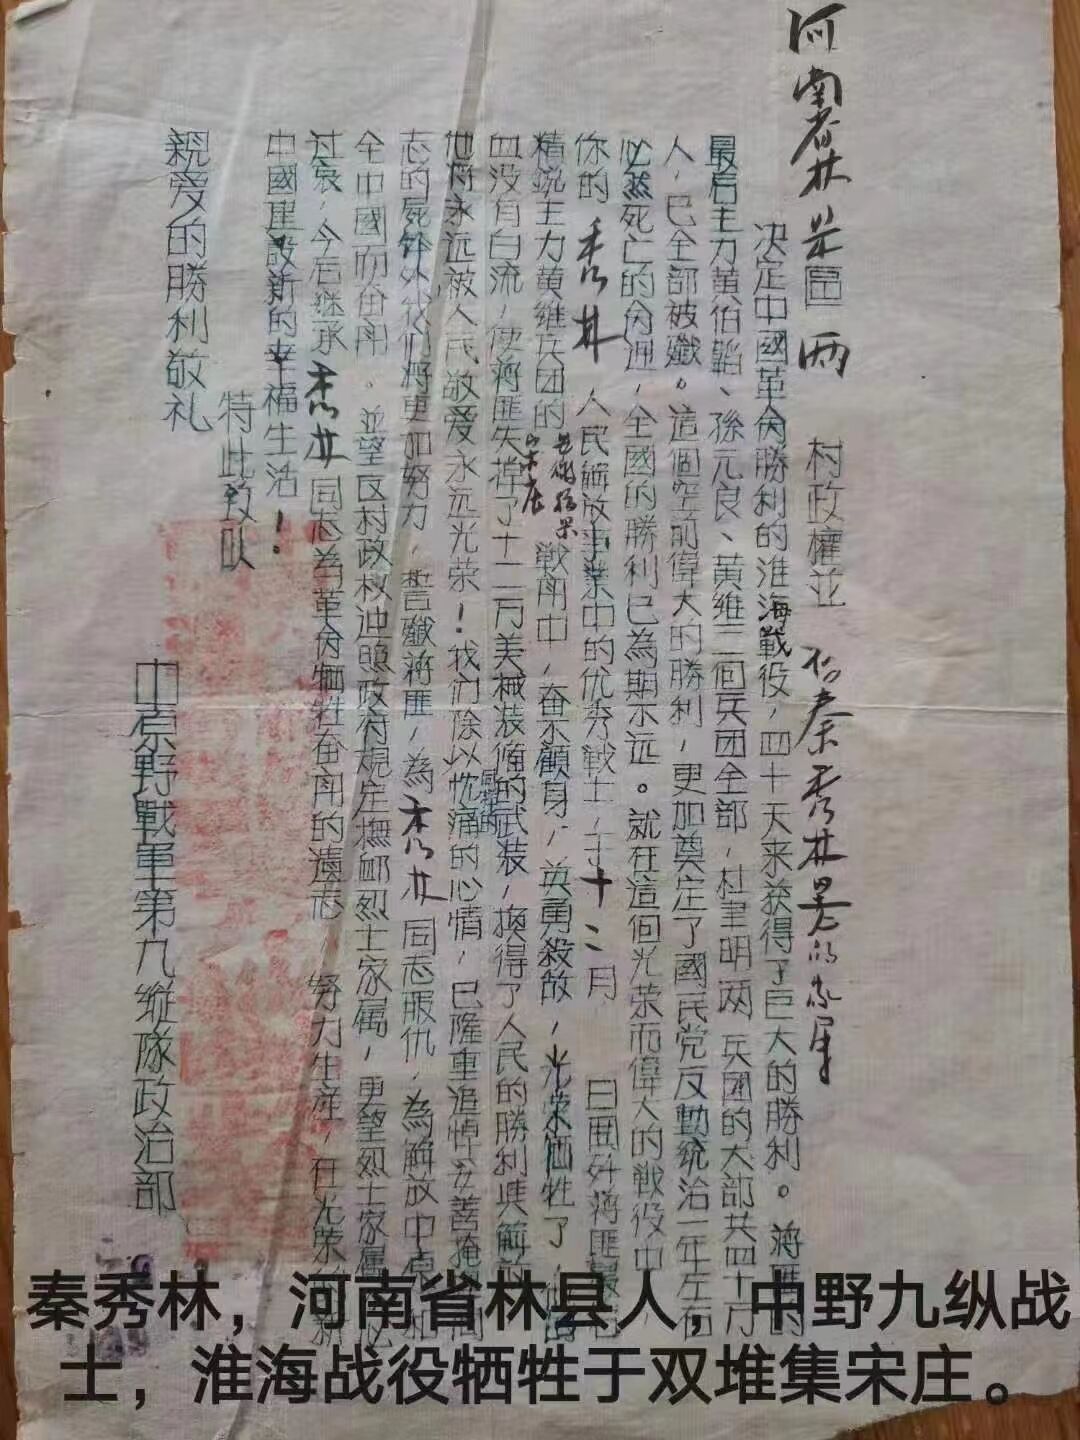 河南省林县區两 村政權並 秦秀林 的家屬
决定中國革命勝利的淮海戰役，四十天来获得了巨大的勝利。蒋匪的
最后主力黄伯韜、孫元良、黄维三個兵团全部，杜聿明两兵團的大部共四十万
人，已全部被殲。這個空前偉大的勝利，更加奠定了國民党反動統治一年左右
必然死亡的命運，全國的勝利已為期不远。就在這個光荣而偉大的戰役中，
你的秀林 人民解放事業中的优秀戰士，于十二月 日围歼蒋匪最
精銳主力黄维兵团的 宋庄 戰鬥中，奋不顧身，英勇殺敌，光荣牺牲了，
血没有白流，使蒋匪失掉了十二万美械装備的武装，换得了人民的勝利與解放
他将永远被人民敬爱永远光荣！我们除以沈痛的心情，已隆重追悼妥善掩
志的屍 外，我们将更加努力，誓殲蒋匪，為秀林同志报仇，為解放中原
全中國而奋鬥。並望区村政权廹照政府规定撫卹烈士家属，更望烈士家屬
过哀，今后继承秀林同志為革命牺牲奋鬥的遗志，努力生産，在光荣 新
中國里設新的幸福生活！
特此致以
親爱的勝利敬礼
中原野戰軍第九縱隊政治部
秦秀林，河南省林县人，中野九纵战
士，淮海战役牺牲于双堆集宋庄。